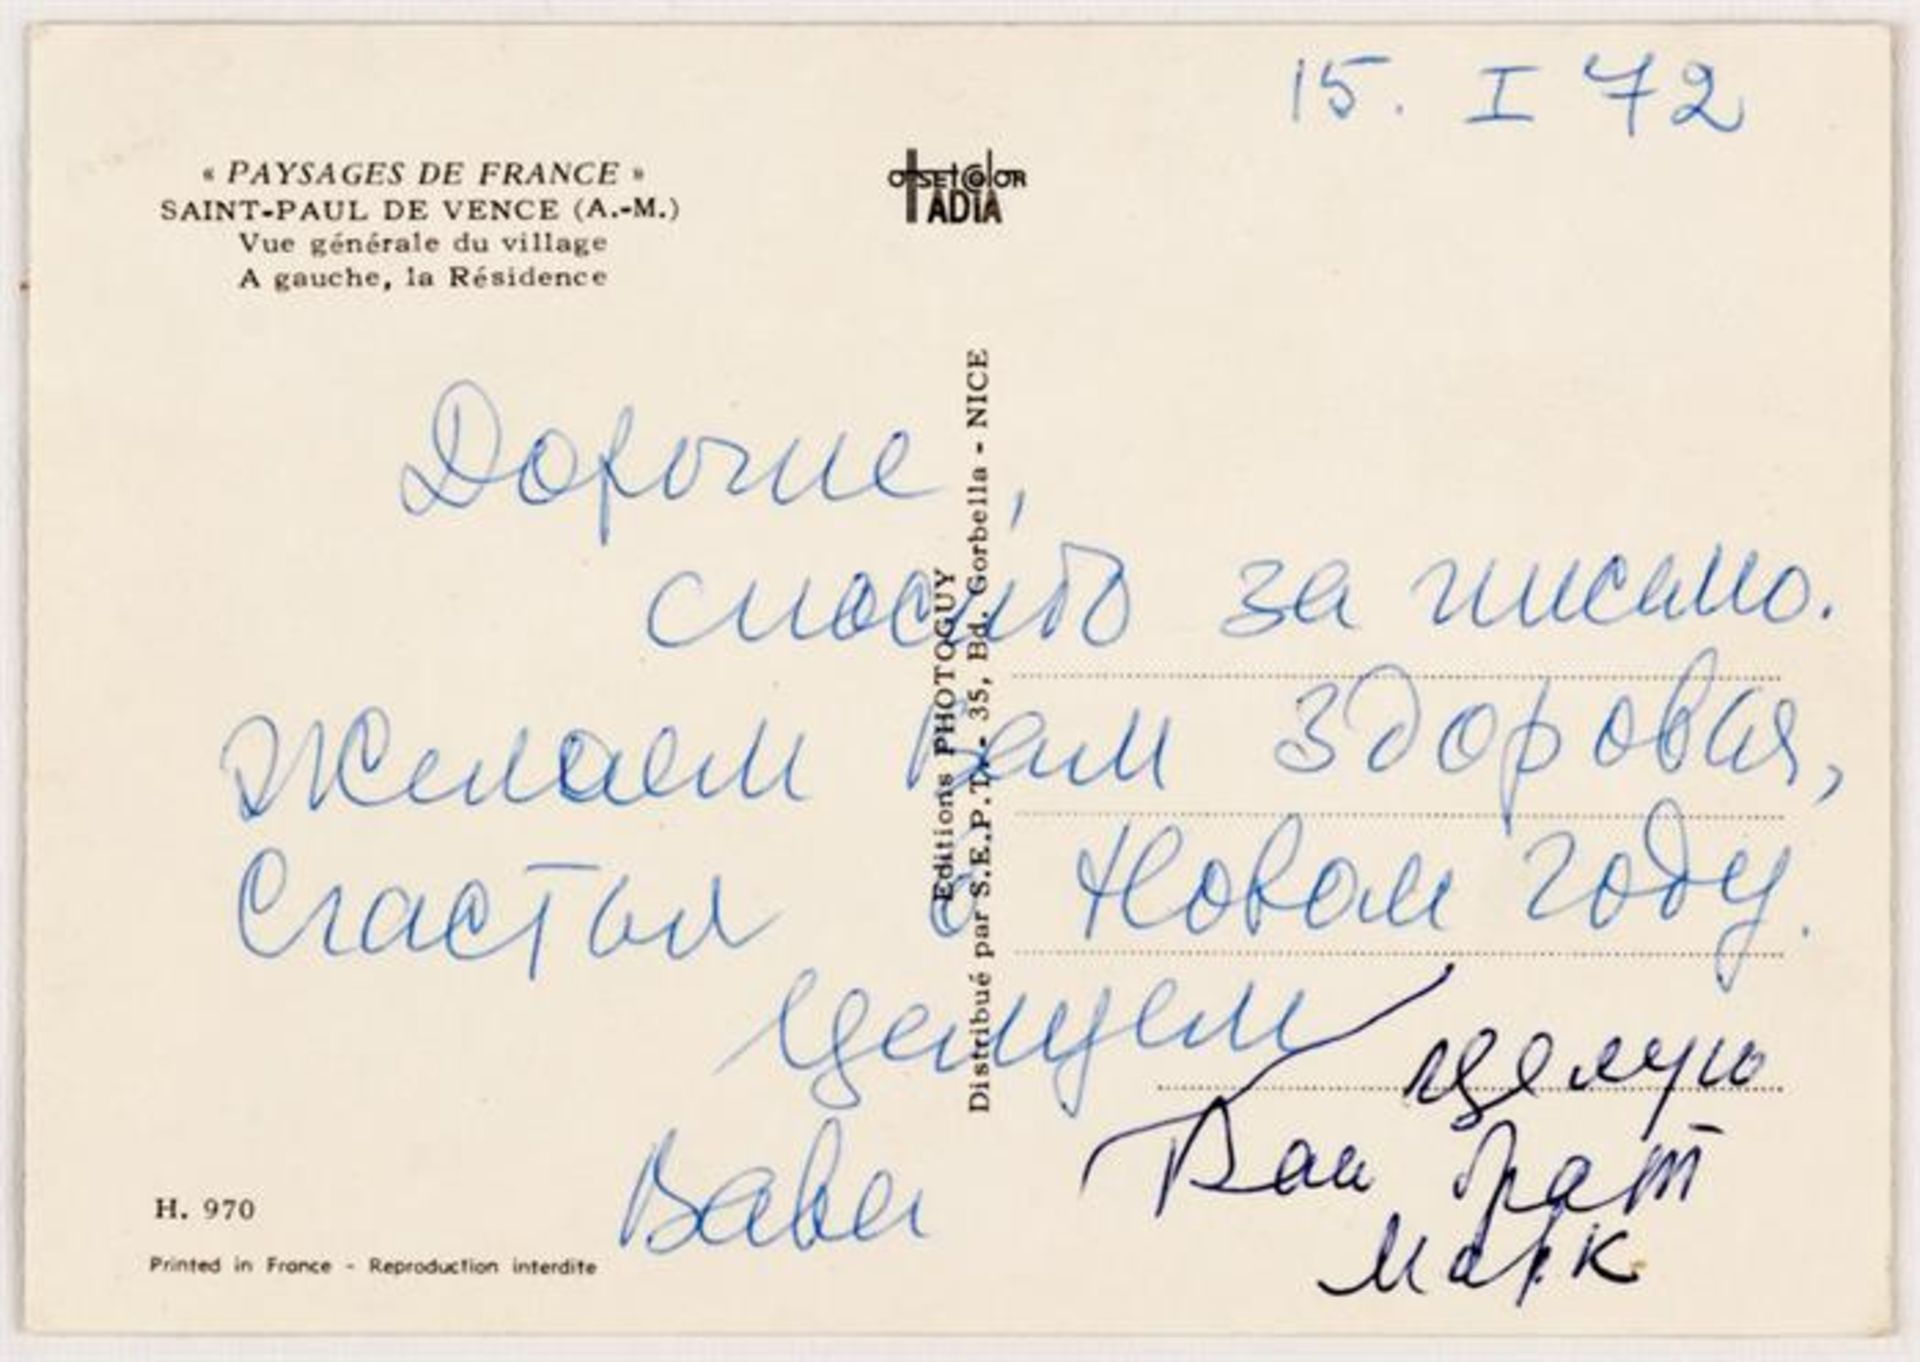 15. I 72
« PAYSAGES DE FRANCE »
SAINT-PAUL DE VENCE (A.-M.)
Vue générale du village
A gauche, la Résidence
OFFSET COLOR
TADIA
Editions PHOTOGUY
Distribué par S.E.P.T. - 35, Bd. Gorbella - NICE
Дорогие,
спасибо за письмо.
Желаем Вам здоровья,
Счастья в Новом году.
Целуем
Вава
целую
Ваш брат
Марк
H. 970
Printed in France - Reproduction interdite